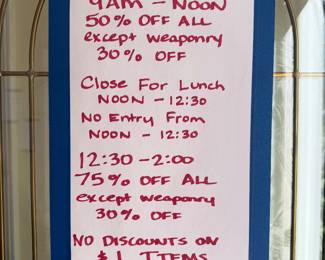 9AM - NOON
50% OFF ALL
except weaponry
30% OFF
Close For Lunch
NOON - 12:30
No Entry From
NOON - 12:30
12:30 - 2:00
75% OFF ALL
except weaponry
30% OFF
NO DISCOUNTS ON
$1 ITEMS